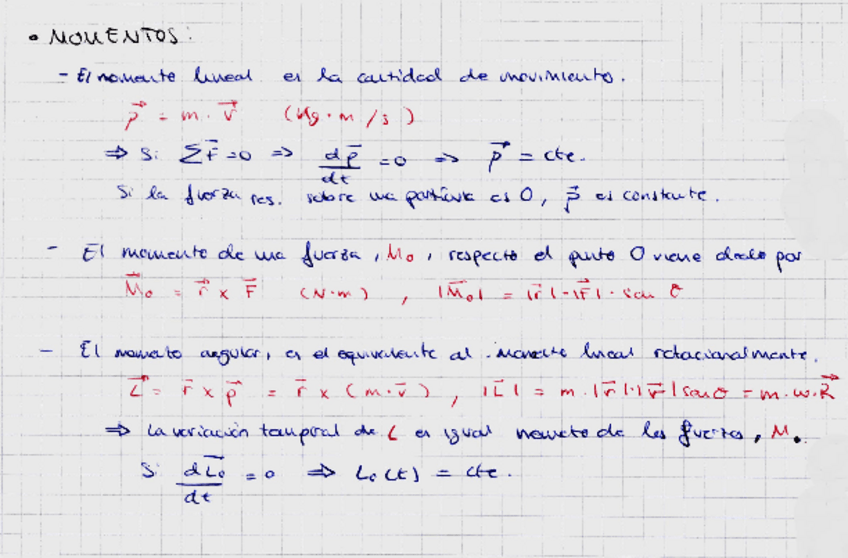 • MOMENTOS:
- El momento lineal es la cantidad de movimiento.
p⃗ = m · v⃗ (Kg · m / s)
⇒ Si ΣF⃗ = 0 ⇒ dp⃗/dt = 0 ⇒ p⃗ = cte.
Si la fuerza res. sobre una partícula es 0, p⃗ es constante.
- El momento de una fuerza, M₀, respecto el punto O viene dado por
M⃗₀ = r⃗ x F⃗ (N·m) , |M⃗₀| = |r⃗|·|F⃗| · sen θ
- El momento angular, es el equivalente al momento lineal rotacionalmente.
L⃗ = r⃗ x p⃗ = r⃗ x (m·v⃗) , |L⃗| = m·|r⃗|·|v⃗| sen θ = m·ω·R⃗
⇒ La variación temporal de L es igual momento de las fuerzas, M.
Si dL⃗₀/dt = 0 ⇒ L₀(t) = cte.